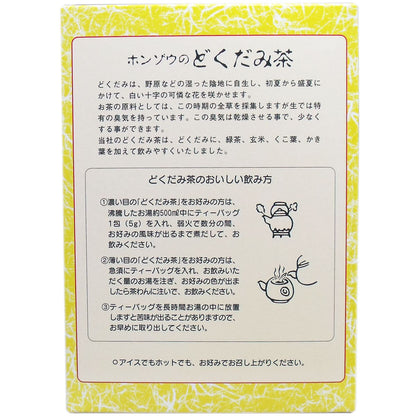 ホンゾウのどくだみ茶
どくだみは、野原などの湿った陰地に自生し、初夏から盛夏に
かけて、白い十字の可憐な花を咲かせます。
お茶の原料としては、この時期の全草を採集しますが生では特
有の臭気を持っています。この臭気は乾燥させる事で、少なく
する事ができます。
当社のどくだみ茶は、どくだみに、緑茶、玄米、くこ葉、かき
葉を加えて飲みやすくいたしました。
どくだみ茶のおいしい飲み方
①濃い目の「どくだみ茶」をお好みの方は、
沸騰したお湯約500㎖中にティーバッグ
1包(5g)を入れ、弱火で数分の間、
お好みの風味が出るまで煮だして、お
飲みください。
②薄い目の「どくだみ茶」をお好みの方は、
急須にティーバッグを入れ、お飲みいた
だく量のお湯を注ぎ、お好みの色が出ま
したら茶わんに注いで、お飲みください。
③ティーバッグを長時間お湯の中に放置
しますと苦味が出ることがありますので、
お早めに取り出してください。
○アイスでもホットでも、お好みでお召し上がりください。